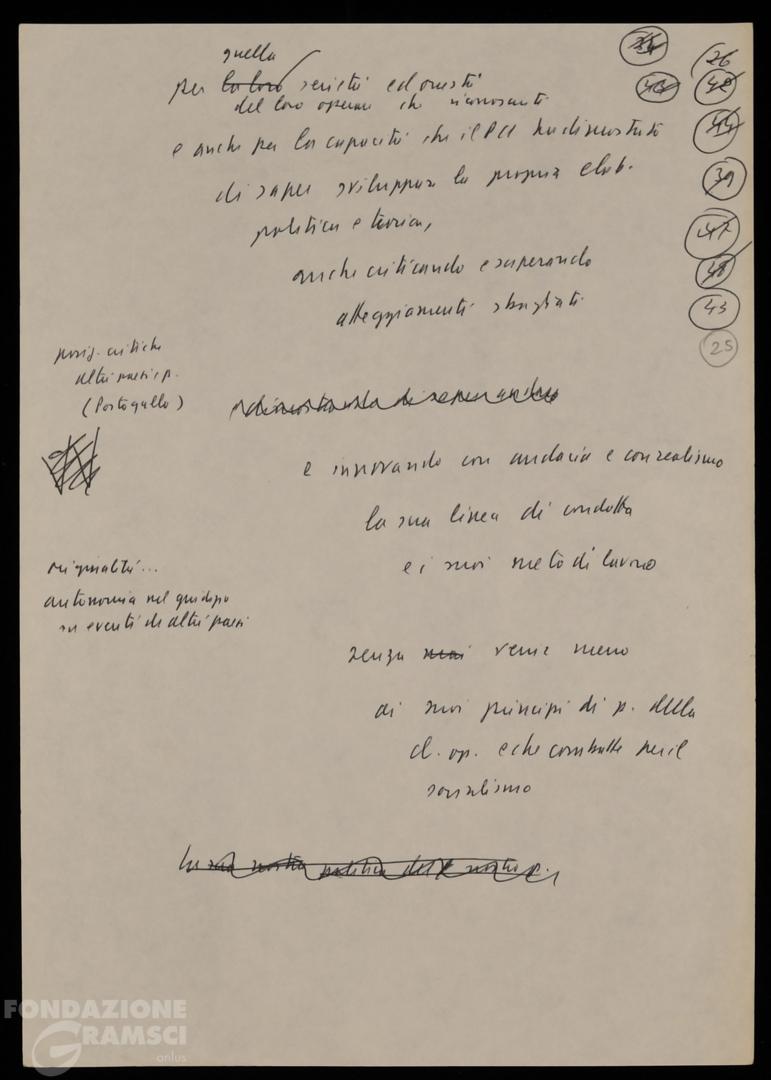 quella
per la loro serietà ed onestà
del loro operare che riconosciuta
e anche per la capacità che il PCI ha dimostrato
di saper sviluppare la propria elab.
politica e teorica,
anche criticando e superando
atteggiamenti sbagliati
posiz. critiche
altri paesi e p.
(Portogallo)
e dimostrando di saper anche
e innovando con audacia e con realismo
la sua linea di condotta
e i suoi metodi di lavoro
originalità...
autonomia nel giudizio
su eventi di altri paesi
senza mai venir meno
ai suoi principi di p. della
cl. op. e che combatte per il
socialismo
La sua nostra politica del nostro p.
26
42
44
39
47
48
43
25
FONDAZIONE
GRAMSCI
onlus